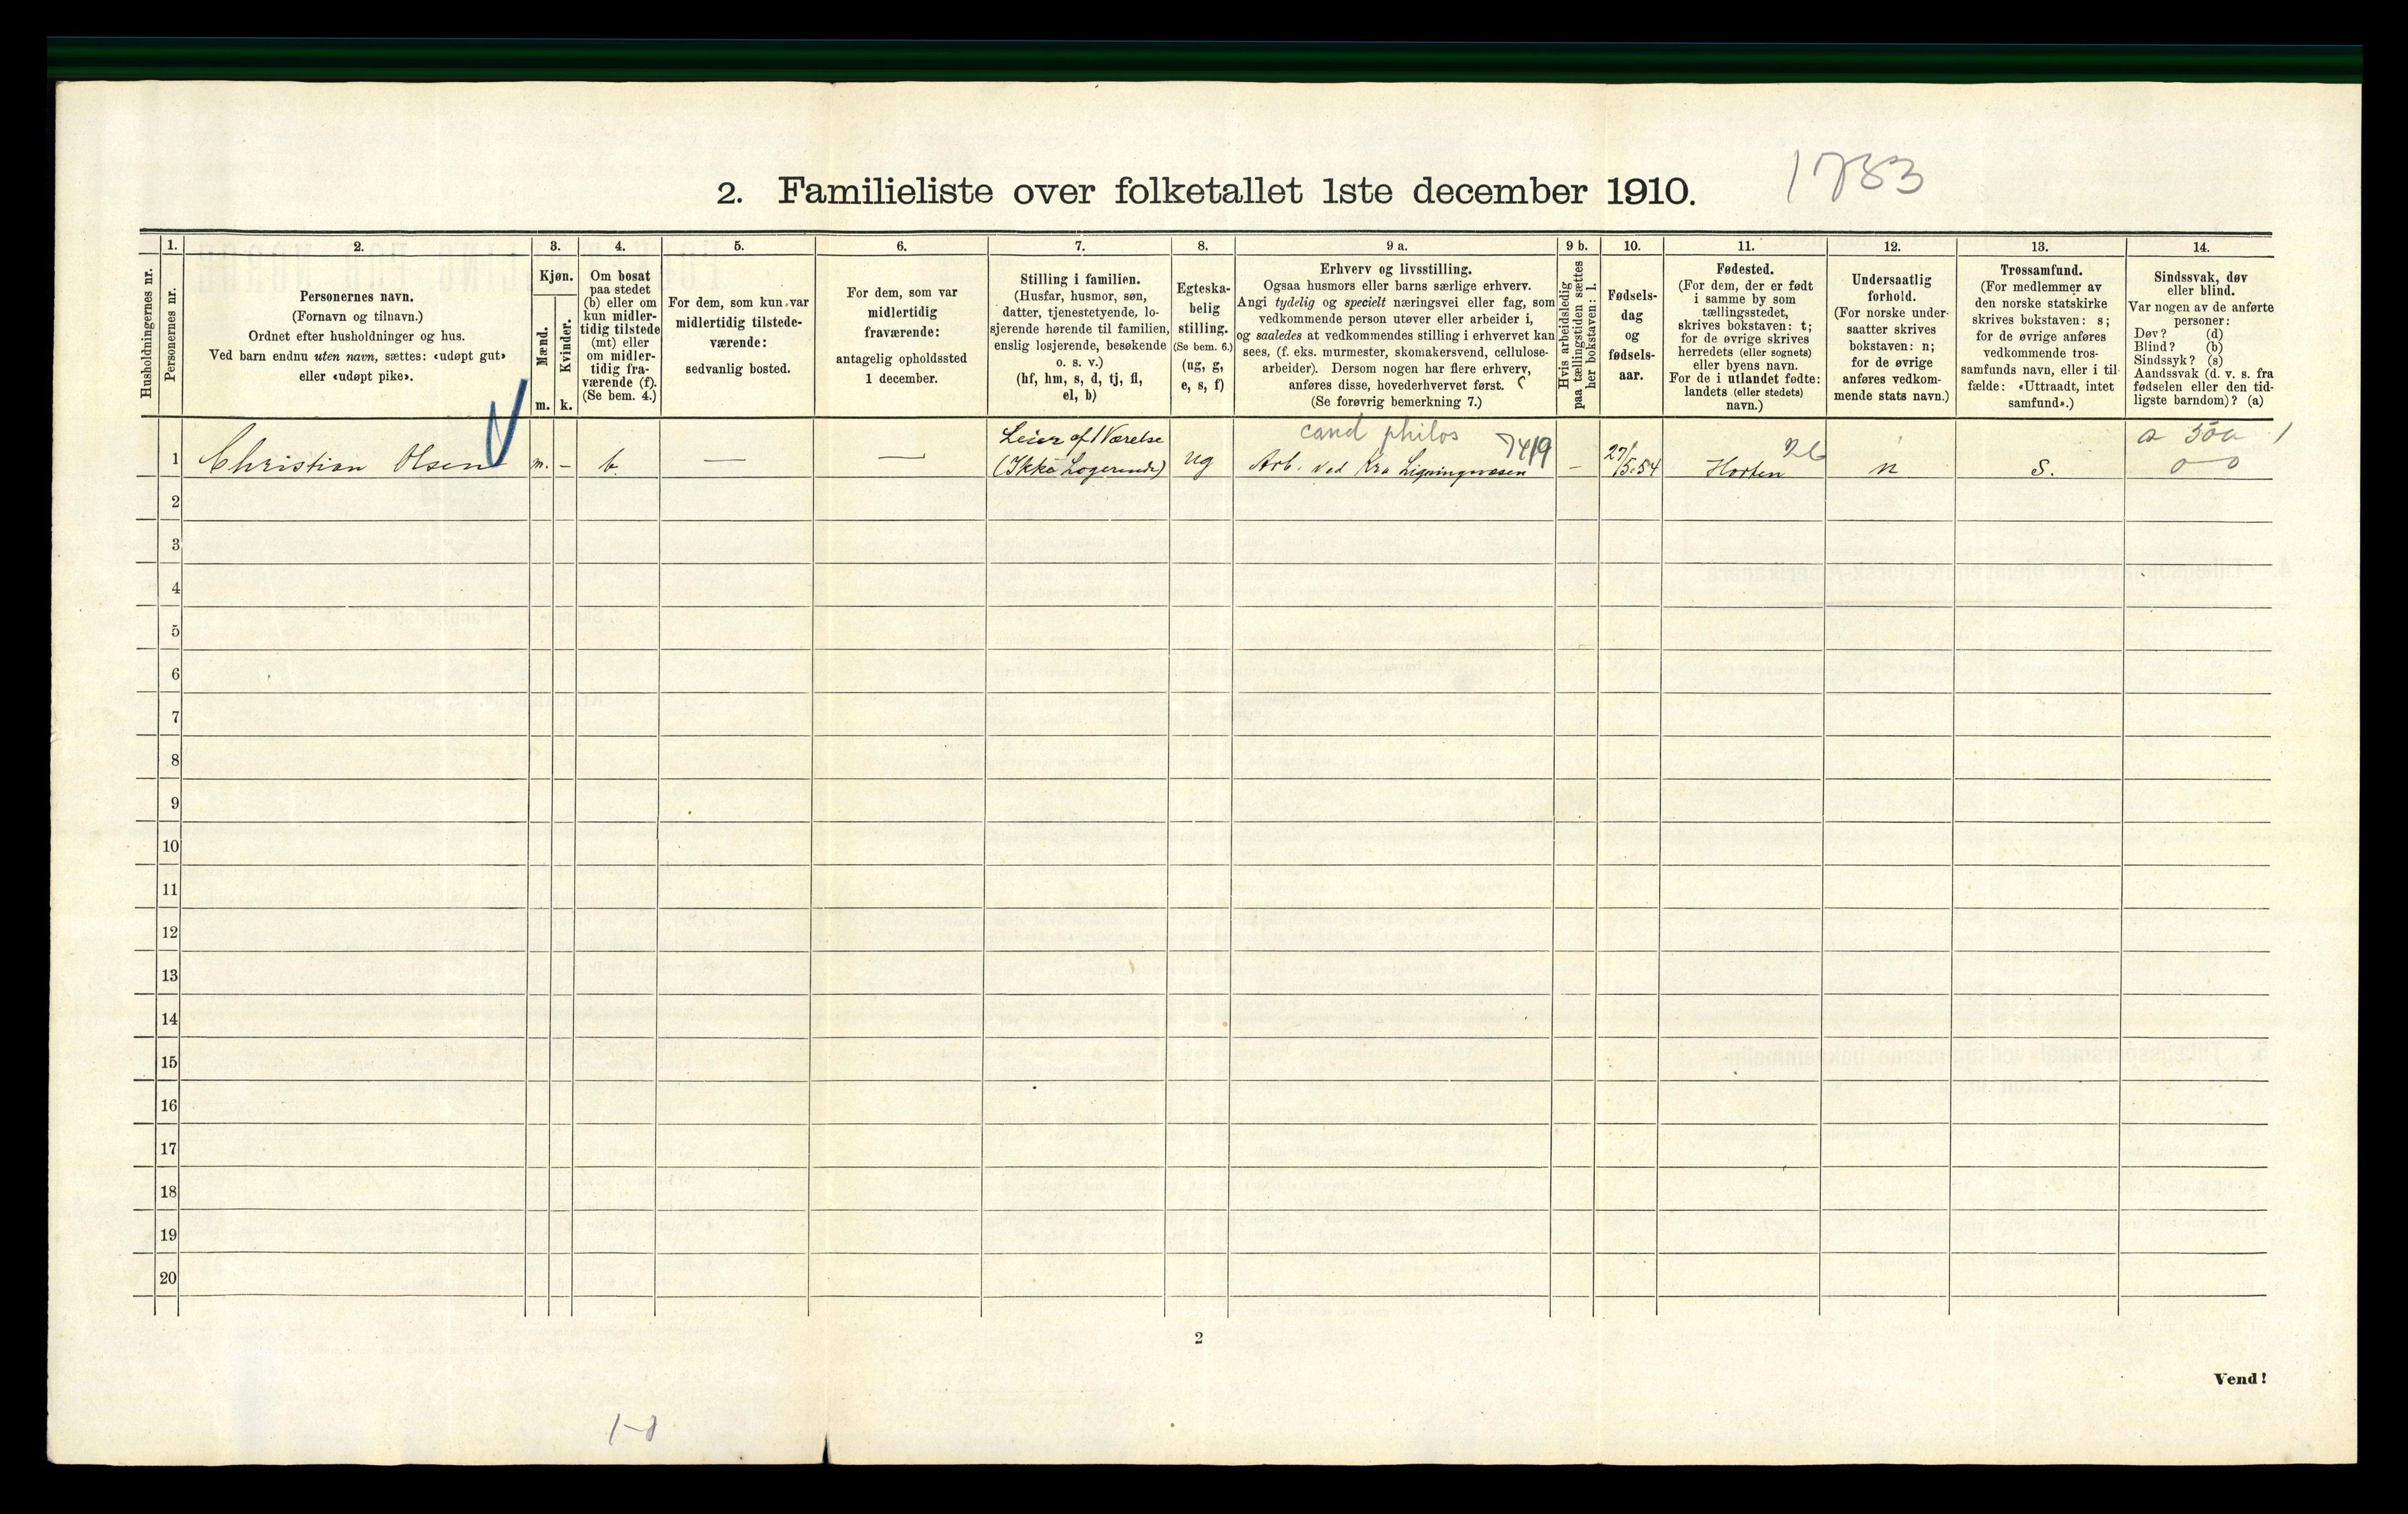 2. Familieliste over folketallet 1ste december 1910.
1783
Husholdningernes nr.
1.
Personernes nr.
2.
Personernes navn.
(Fornavn og tilnavn.)
Ordnet efter husholdninger og hus.
Ved barn endnu uten navn, sættes: «udøpt gut»
eller «udøpt pike».
3.
Kjøn.
Mænd.
m.
Kvinder.
k.
4.
Om bosat
paa stedet
(b) eller om
kun midler-
tidig tilstede
(mt) eller
om midler-
tidig fra-
værende (f).
(Se bem. 4.)
5.
For dem, som kun var
midlertidig tilstede-
værende:
sedvanlig bosted.
6.
For dem, som var
midlertidig
fraværende:
antagelig opholdssted
1 december.
7.
Stilling i familien.
(Husfar, husmor, søn,
datter, tjenestetyende, lo-
sjerende hørende til familien,
enslig losjerende, besøkende
o. s. v.)
(hf, hm, s, d, tj, fl,
el, b)
8.
Egteska-
belig
stilling.
(Se bem. 6.)
(ug, g,
e, s, f)
9 a.
Erhverv og livsstilling.
Ogsaa husmors eller barns særlige erhverv.
Angi tydelig og specielt næringsvei eller fag, som
vedkommende person utøver eller arbeider i,
og saaledes at vedkommendes stilling i erhvervet kan
sees, (f. eks. murmester, skomakersvend, cellulose-
arbeider). Dersom nogen har flere erhverv,
anføres disse, hovederhvervet først.
(Se forøvrig bemerkning 7.)
9 b.
Hvis arbeidsledig
paa tællingstiden sættes
her bokstaven: l.
10.
Fødsels-
dag
og
fødsels-
aar.
11.
Fødested.
(For dem, der er født
i samme by som
tællingsstedet,
skrives bokstaven: t;
for de øvrige skrives
herredets (eller sognets)
eller byens navn.
For de i utlandet fødte:
landets (eller stedets)
navn.)
12.
Undersaatlig
forhold.
(For norske under-
saatter skrives
bokstaven: n;
for de øvrige
anføres vedkom-
mende stats navn.)
13.
Trossamfund.
(For medlemmer av
den norske statskirke
skrives bokstaven: s;
for de øvrige anføres
vedkommende tros-
samfunds navn, eller i til-
fælde: «Uttraadt, intet
samfund».)
14.
Sindssvak, døv
eller blind.
Var nogen av de anførte
personer:
Døv? (d)
Blind? (b)
Sindssyk? (s)
Aandssvak (d. v. s. fra
fødselen eller den tid-
ligste barndom)? (a)
Leier af 1 Værelse cand philos 7419 26
1 Christian Olsen m. – b. — — (Ikke Logerende) ug Arb. ved Kra Ligningvæsen – 27/5.54 Horten n S. 0 0
2
3
4
5
6
7
8
9
10
11
12
13
14
15
16
17
18
19
20
2
Vend!
1-1